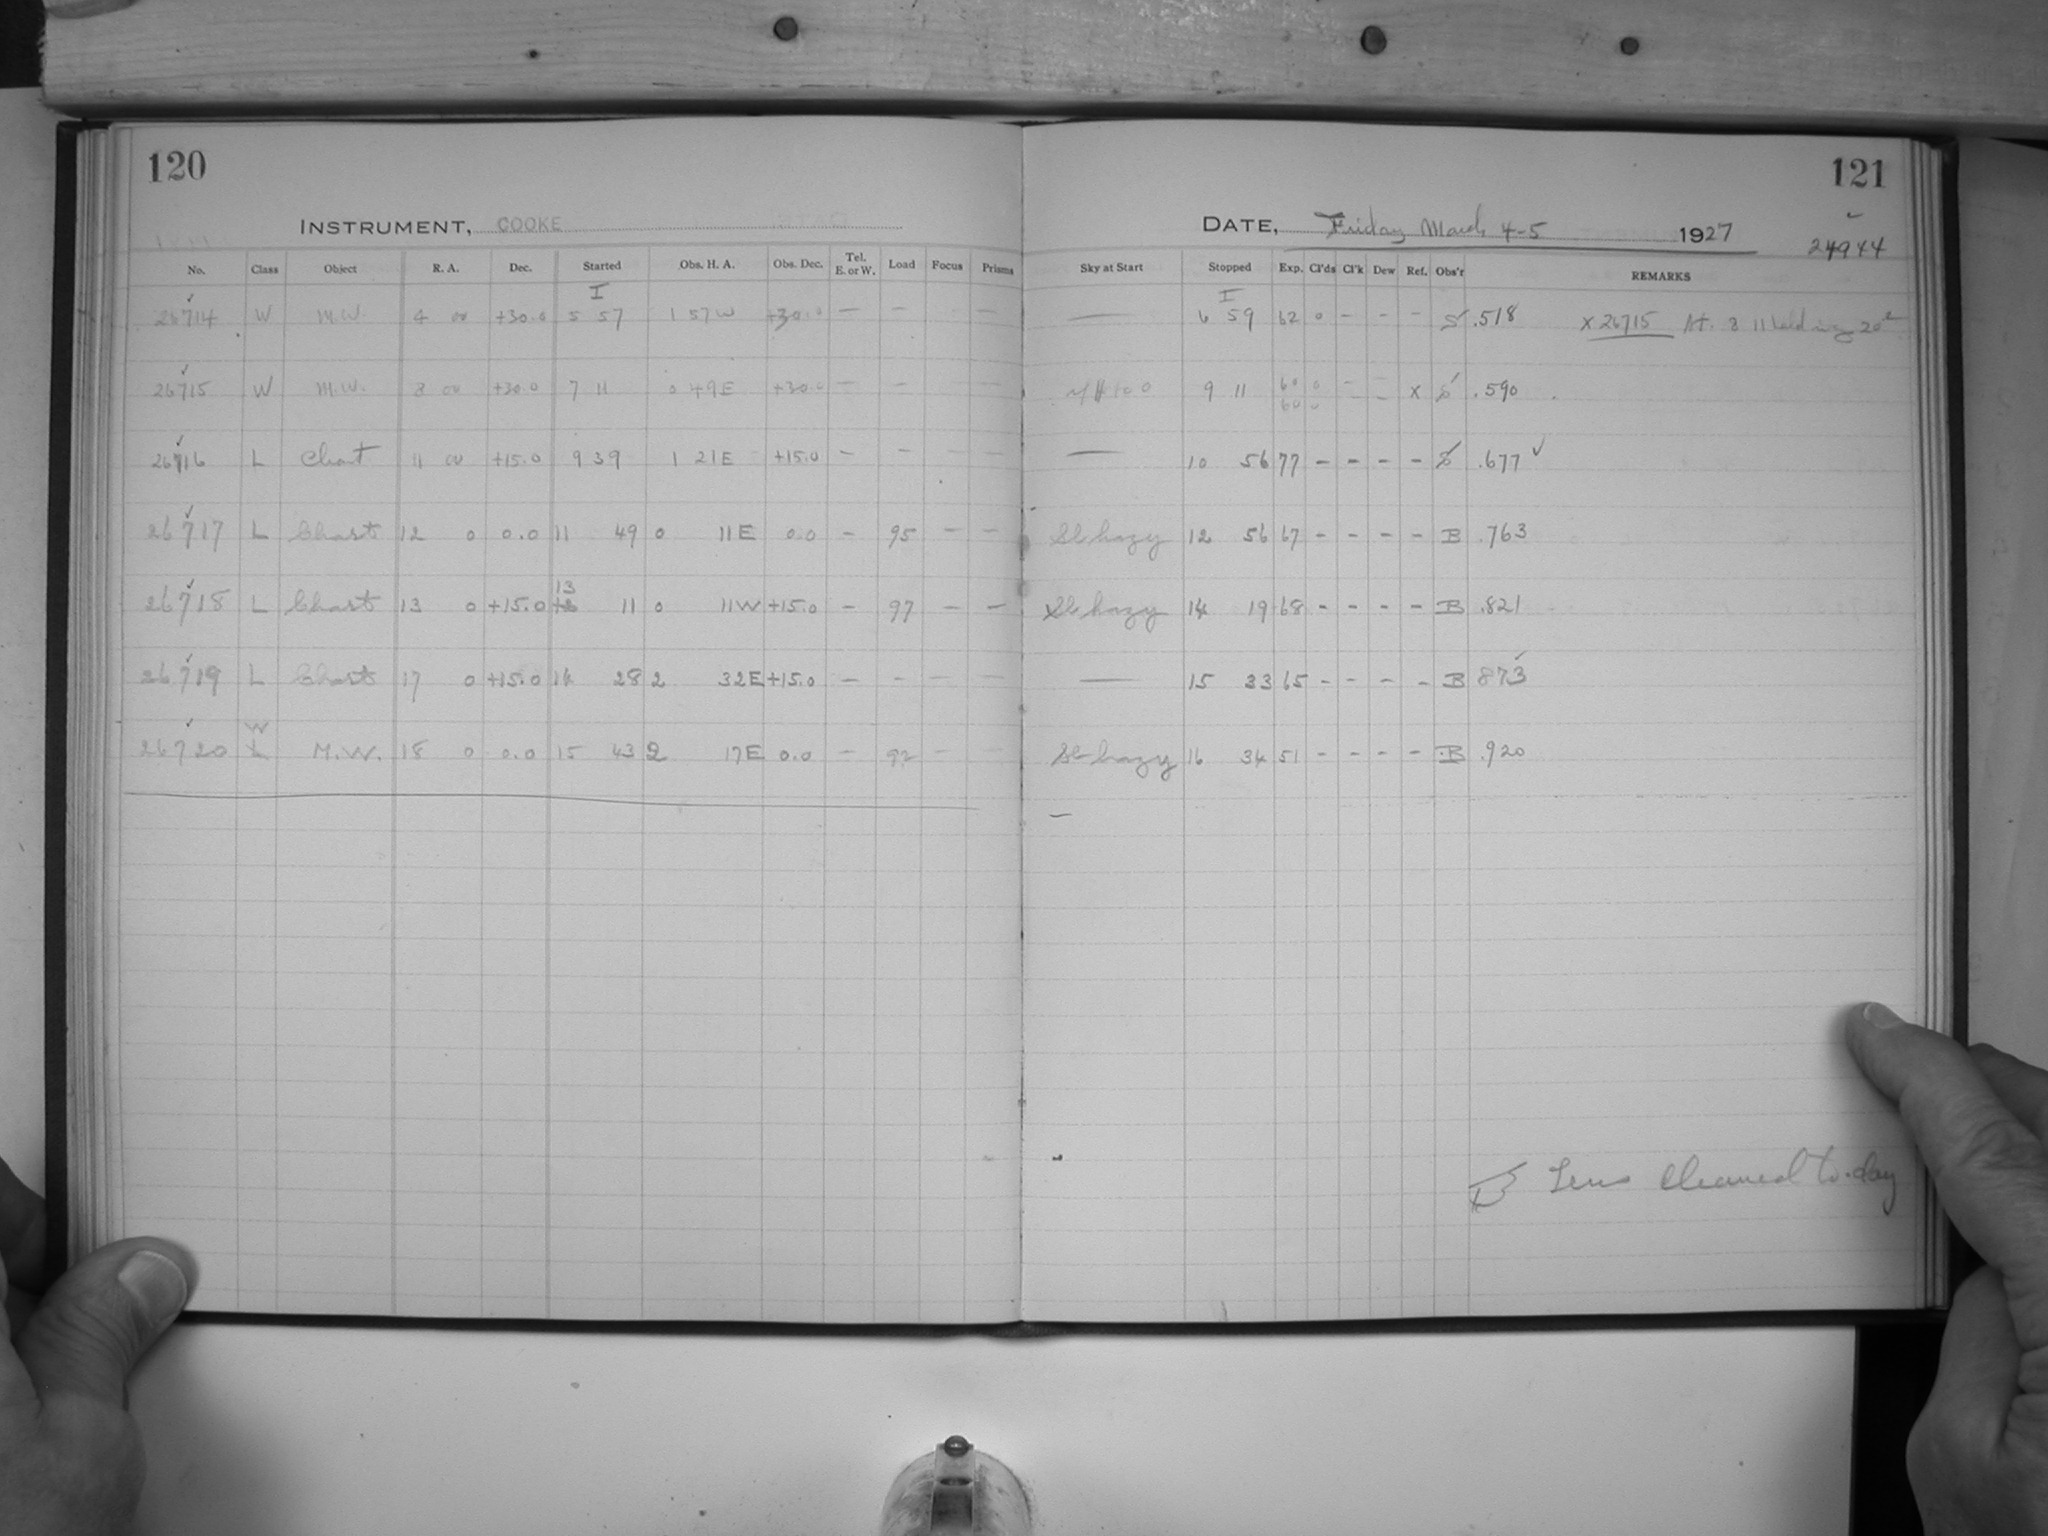 120
INSTRUMENT, COOKE
No. Class Object R. A. Dec. Started Obs. H. A. Obs. Dec. Tel. E. or W. Load Focus Prisms
I
26714 W M.W. 4 00 +30.0 5 57 1 57 W +30.0 — — — —
26715 W M.W. 8 00 +30.0 7 11 0 49 E +30.0 — — — —
26716 L Chart 11 00 +15.0 9 39 1 21 E +15.0 — — — —
26717 L Chart 12 0 0.0 11 49 0 11 E 0.0 — 95 — —
13
26718 L Chart 13 0 +15.0 11 0 11 W +15.0 — 97 — —
26719 L Chart 17 0 +15.0 14 28 2 32 E +15.0 — — — —
W
26720 L M.W. 18 0 0.0 15 43 2 17 E 0.0 — 92 — —
121
DATE, Friday March 4-5 1927
24944
Sky at Start Stopped Exp. Cl'ds Cl'k Dew Ref. Obs'r REMARKS
I
— 6 59 62 0 - - - S .518 x 26715 At. 8 11
9 11 60 0 - - x S .590
60 0 - -
— 10 56 77 - - - - S .677 ✓
Sl hazy 12 56 67 - - - - B .763
Sl hazy 14 19 68 - - - - B .821
— 15 33 65 - - - - B 873
Sl hazy 16 34 51 - - - - B .920
Lens cleaned to-day